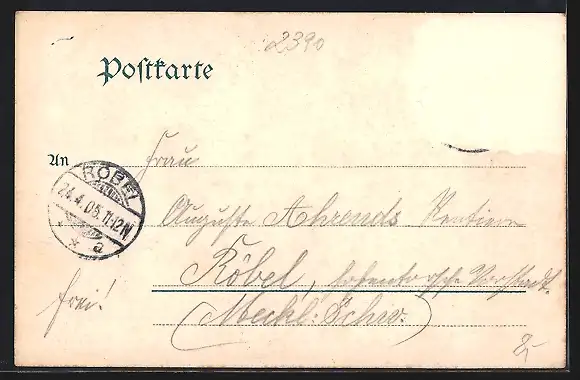 2390
Postkarte
An Frau
RÖBEL
24.4.05.11-12N
* a
Auguste Ahrends Rentiere
Röbel,
frei!
(Meckl. Schw.)
2,-